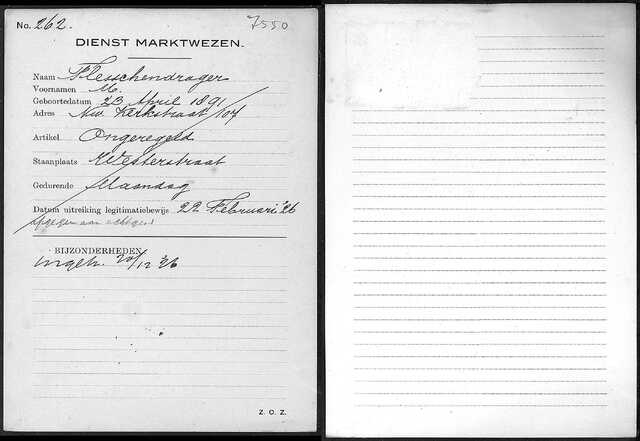 No. 262.
7550
DIENST MARKTWEZEN.
Naam Flesschendrager
Voornamen M.
Geboortedatum 23 April 1891
Adres Nw. Kerkstraat 107
Artikel Ongeregeld
Staanplaats Westerstraat
Gedurende Maandag
Datum uitreiking legitimatiebewijs 22 Februari '26
aan
BIJZONDERHEDEN
Ingetr. 20/12 '26
Z. O. Z.